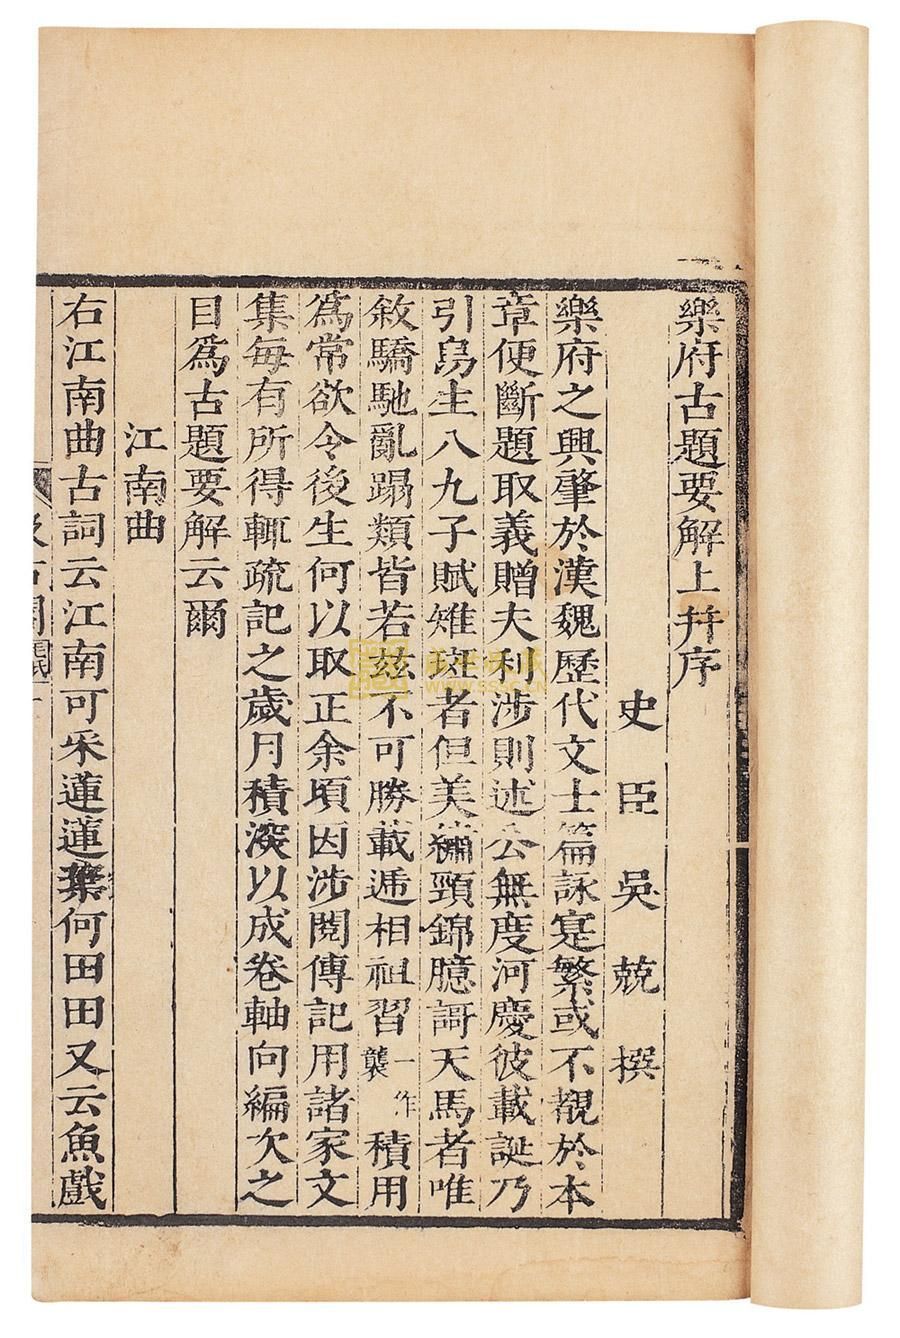 樂府古題要解上并序
史臣吳兢撰
樂府之興肇於漢魏歷代文士篇詠寔繁或不覩於本
章便斷題取義贈夫利涉則述公無度河慶彼載誕乃
引烏生八九子賦雉斑者但美繡頸錦臆謌天馬者唯
敘驕馳亂蹋類皆若兹不可勝載遞相祖習一作襲積用
爲常欲令後生何以取正余頃因涉閱傳記用諸家文
集每有所得輒疏記之歲月積深以成卷軸向編次之
目爲古題要解云爾
江南曲
右江南曲古詞云江南可采蓮蓮葉何田田又云魚戲
汲古閣
毛氏
WWW.SSSC.CN